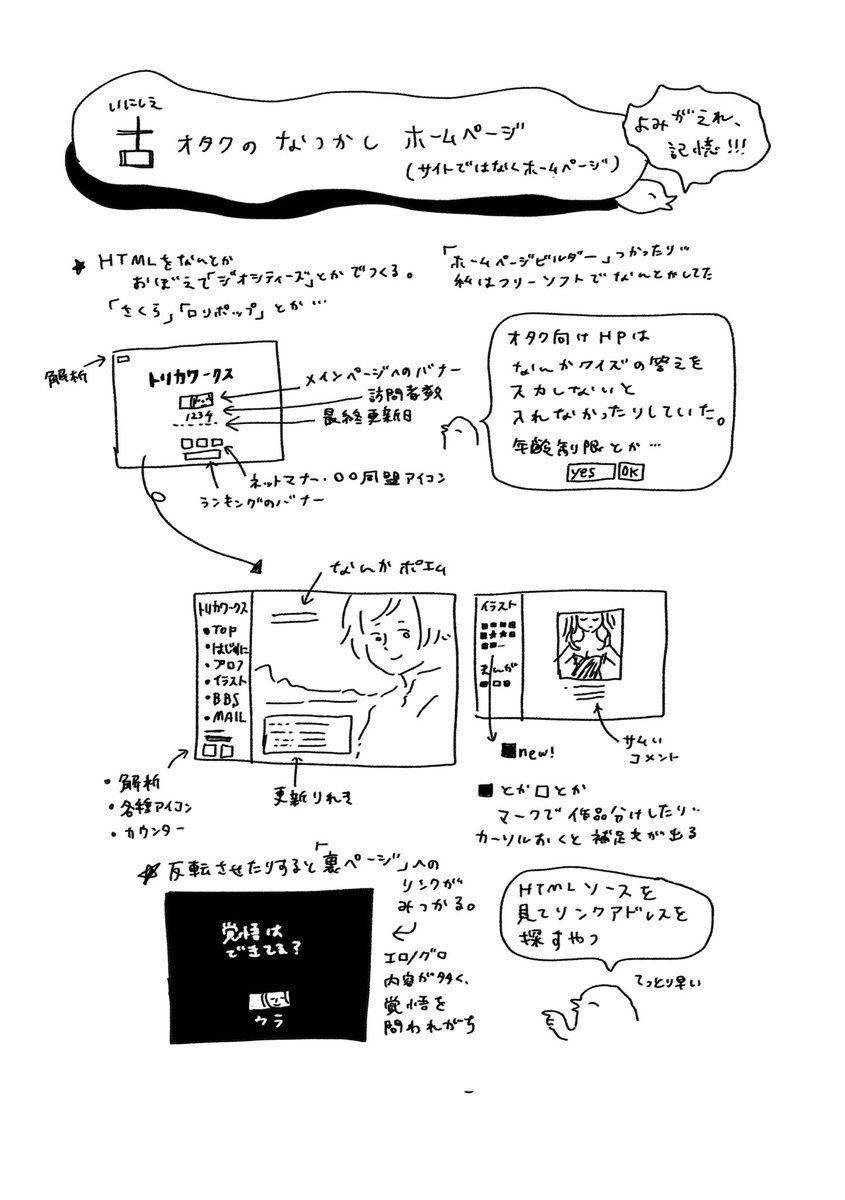 いにしえ
古 オタクの なつかし ホームページ
(サイトではなくホームページ)
よみがえれ、
記憶!!!
★ HTMLをなんとか
おぼえて「ジオシティーズ」とかでつくる。
「さくら」「ロリポップ」とか…
「ホームページビルダー」つかったり…
私はフリーソフトでなんとかしてた
解析
トリカワークス
1234
メインページへのバナー
訪問者数
最終更新日
ネットマナー・〇〇同盟アイコン
ランキングのバナー
オタク向けHPは
なんかクイズの答えを
入力しないと
入れなかったりしていた。
年齢制限とか…
yes OK
なんかポエム
トリカワークス
●TOP
●はじめに
・プロフ
●イラスト
●BBS
●MAIL
・解析
・各種アイコン
・カウンター
更新りれき
イラスト
まんが
■new!
サムい
コメント
■とか□とか
マークで作品分けしたり…
カーソルおくと補足文が出る
☆反転させたりすると「裏ページ」への
リンクが
みつかる。
覚悟は
できてる?
ウラ
エロ/グロ
内容が多く、
覚悟を
問われがち
HTMLソースを
見てリンクアドレスを
探すやつ
てっとり早い